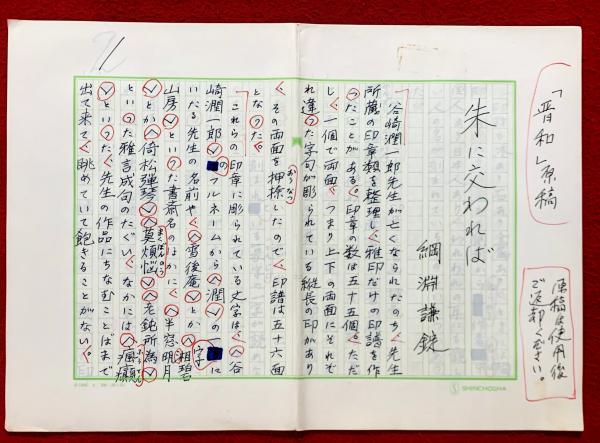 「晋和」原稿
原稿は使用後
ご返却ください。
朱に交われば
綱淵謙錠
谷崎潤一郎先生が亡くなられたのち、先生
所蔵の印章類を整理し、雅印だけの印譜を作
ったことがある。印章の数は五十五個。ただ
し、一個で両面、つまり上下の両面にそれぞ
れ違った字句が彫られている縦長の印があり
、その両面を押捺したので、印譜は五十六面
おうなつ
となった。
これらの印章に彫られている文字は、〈谷
崎潤一郎〉のフルネームから〈潤〉の一字に
いたる先生の名前や、〈雪後庵〉とか〈湘碧
山房〉といった書斎名のほかに、〈半窓明月
〉とか〈倚松弾琴〉〈莫煩悩〉〈老鈍所為〉
まくぼんのう
といった雅言成句のたぐい、なかには〈瘋癲
〉といった、先生の作品にちなむことばまで
出て来て、眺めていて飽きることがない。印
1
SHINCHOSHA